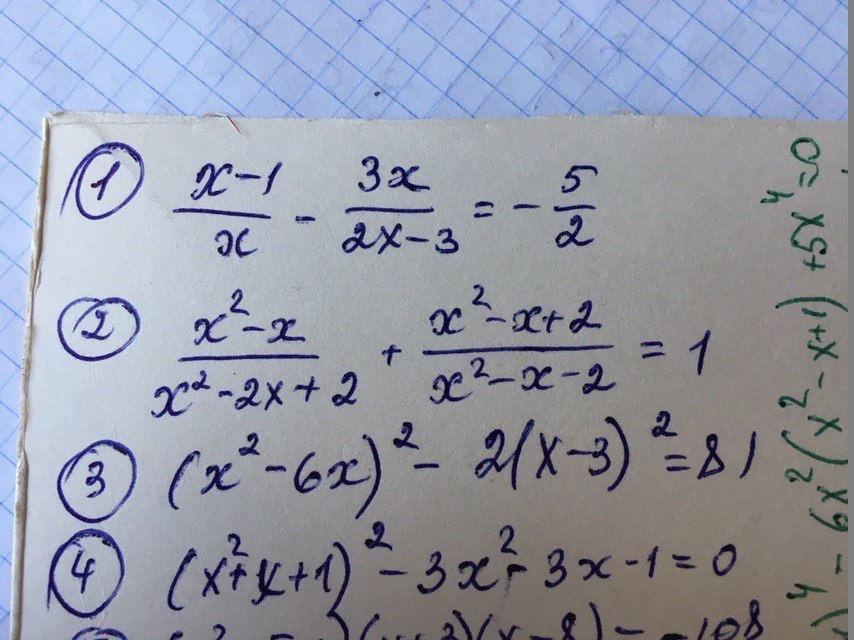 ① (x-1)/x - 3x/(2x-3) = -5/2
② (x²-x)/(x²-2x+2) + (x²-x+2)/(x²-x-2) = 1
③ (x²-6x)² - 2(x-3)² = 81
④ (x²+x+1)² - 3x² - 3x - 1 = 0
(x-8) = -108
- 6x²(x²-x+1) + 5x⁴ = 0